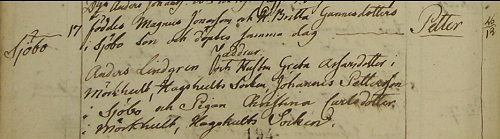 Sjöbo 17 föddes Magnus Jonasson och H. Britta Gunnesdotters Petter
i Sjöbo Son och döptes samma dag
Faddrar
Anders Lindgren och Hustru Greta
Mörkhult, Hagshults Socken, Johannes Pettersson
i Sjöbo och Pigan Christina Carlsdotter
i Mörkhult, Hagshults Socken.